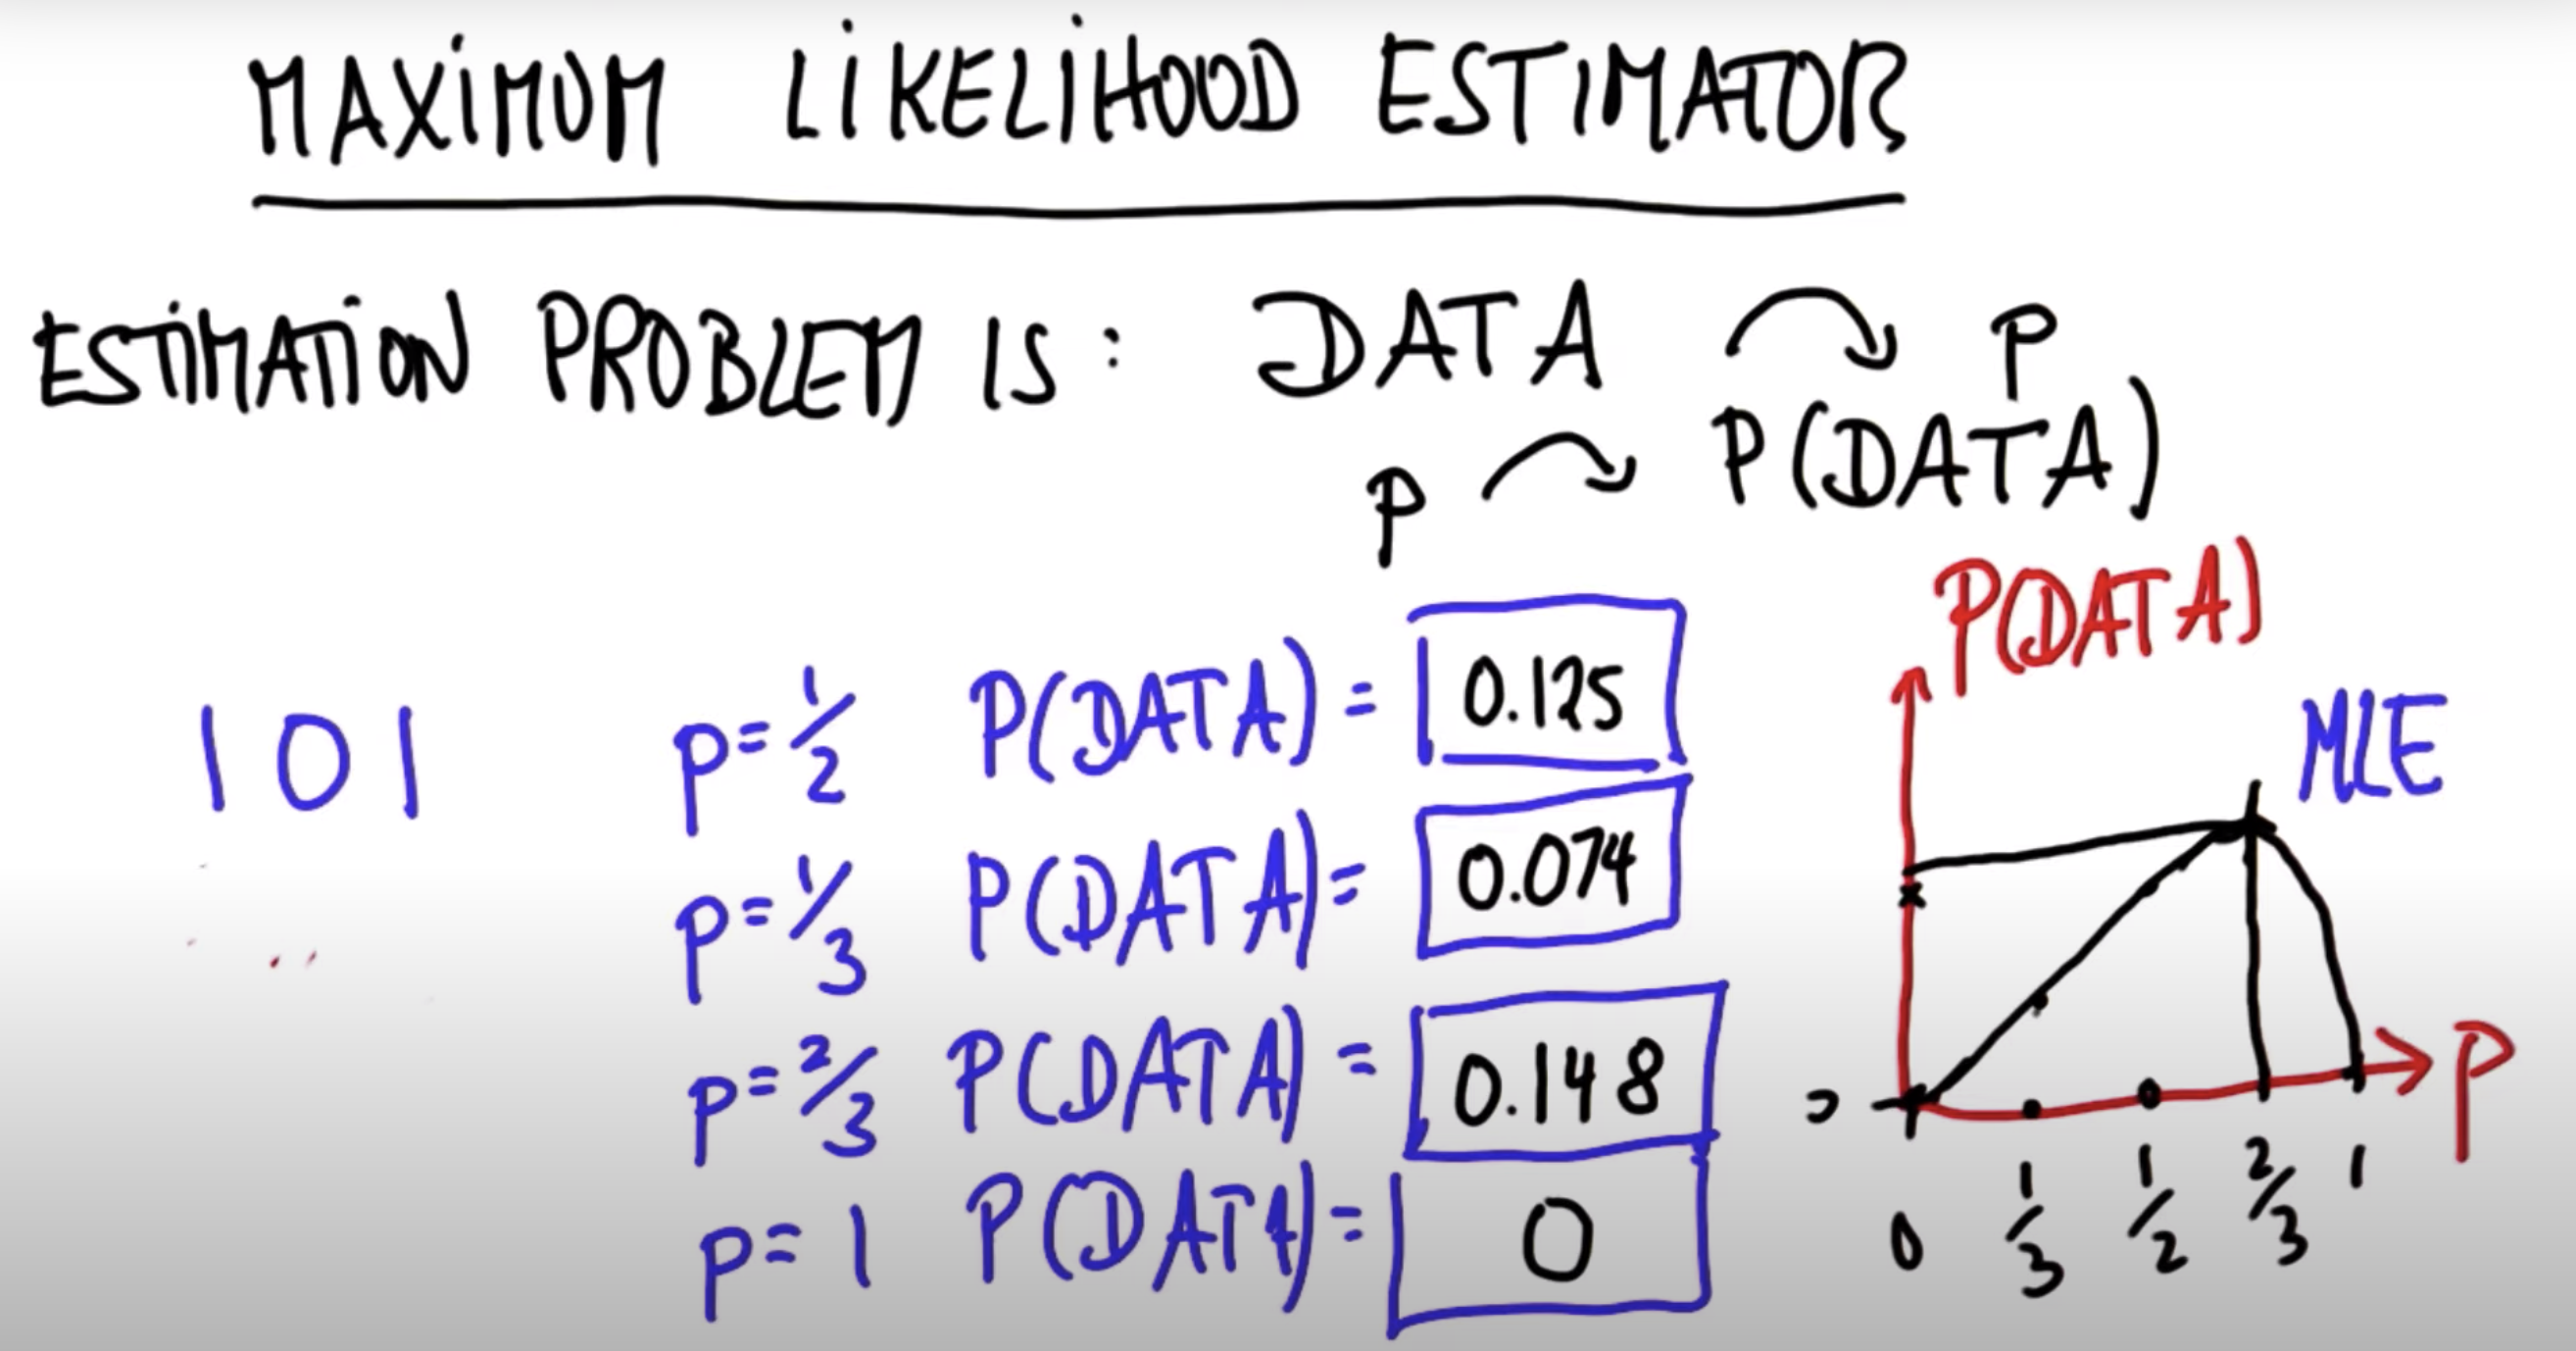 MAXIMUM LIKELIHOOD ESTIMATOR
ESTIMATION PROBLEM IS: DATA P
P P(DATA)
P(DATA)
MLE
101 p=1/2 P(DATA) = 0.125
p=1/3 P(DATA) = 0.074
p=2/3 P(DATA) = 0.148
p=1 P(DATA) = 0
P
0 1/3 1/2 2/3 1